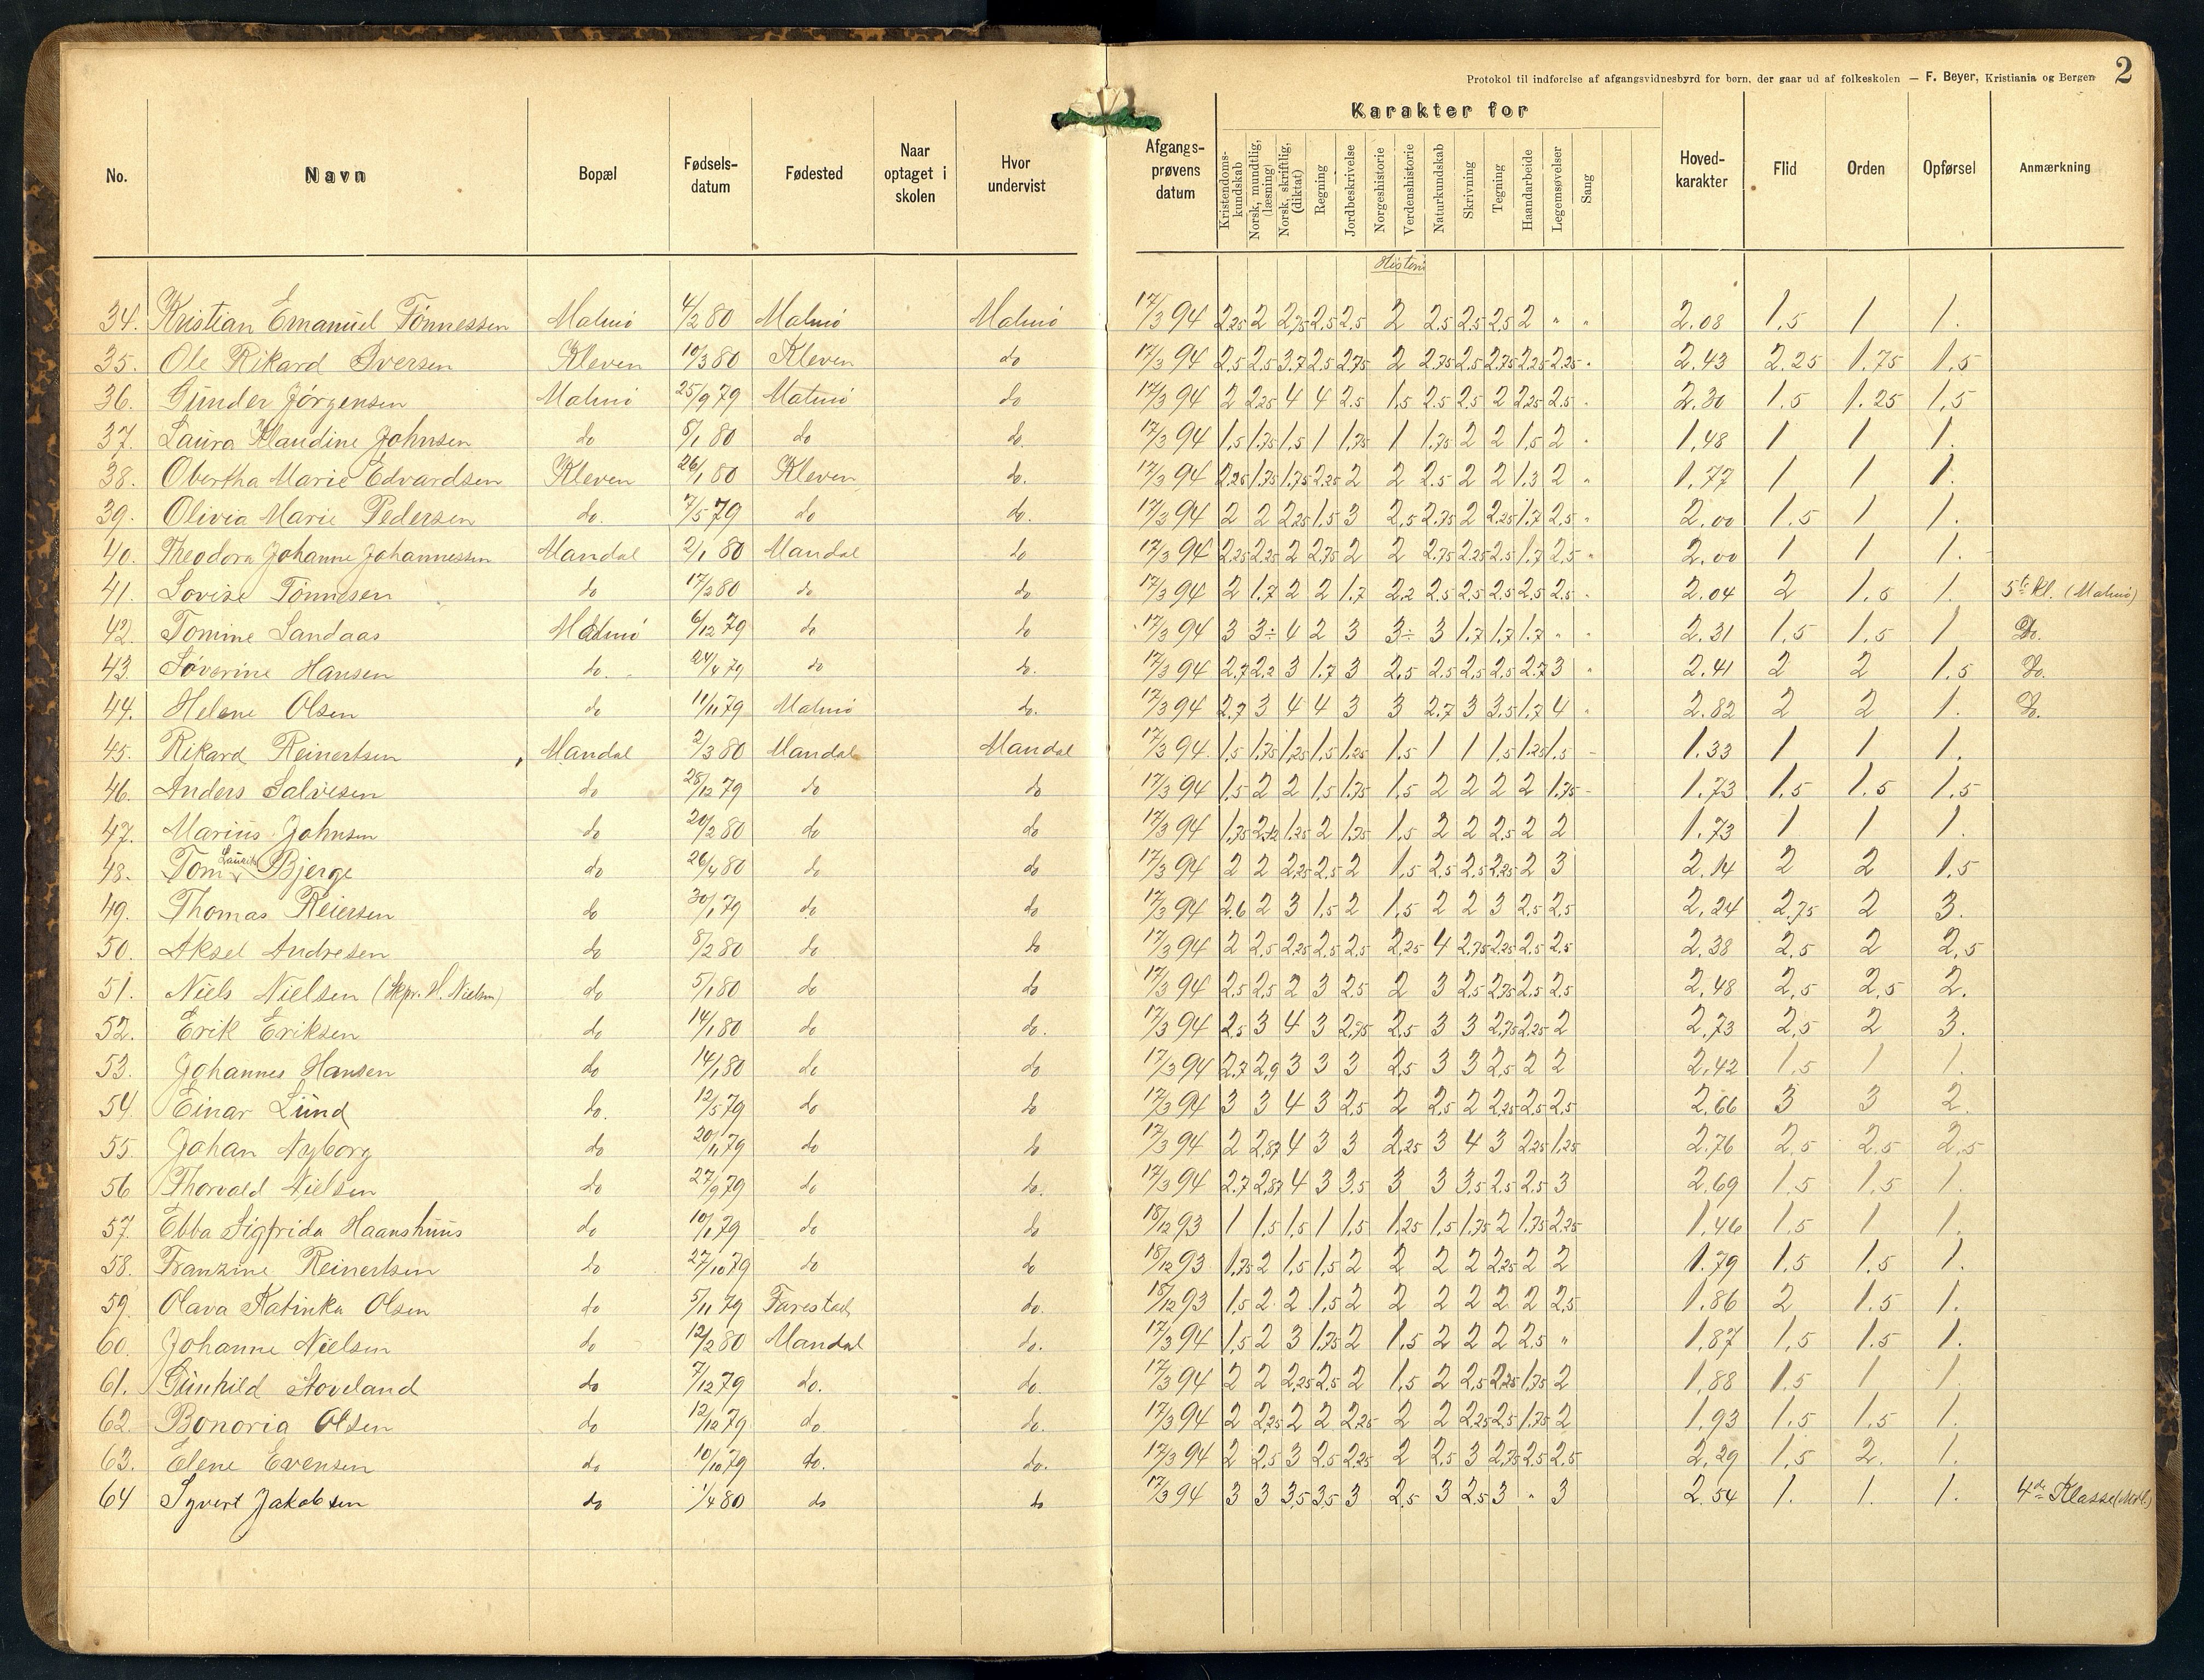 Protokol til indførelse af afgangsvidnesbyrd for børn, der gaar ud af folkeskolen — F. Beyer, Kristiania og Bergen 2
No. Navn Bopæl Fødsels-datum Fødested Naar optaget i skolen Hvor undervist Afgangs-prøvens datum Karakter for Hoved-karakter Flid Orden Opførsel Anmærkning
Kristendoms-kundskab Norsk, mundtlig, (læsning) Norsk, skriftlig, (diktat) Regning Jordbeskrivelse Norgeshistorie Verdenshistorie Naturkundskab Skrivning Tegning Haandarbeide Legemsøvelser Sang
Historie
34. Kristian Emanuel Tönnessen Malmö 4/2 80 Malmö Malmö 17/3 94 2,25 2 2,75 2,5 2,5 2 2,5 2,5 2,5 2 " " 2.08 1,5 1 1.
35. Ole Rikard Iversen Kleven 10/3 80 Kleven do 17/3 94 2,5 2,5 3,7 2,5 2,75 2 2,75 2,5 2,75 2,25 2,25 " 2.43 2.25 1.75 1,5
36. Gunder Jörgensen Malmö 25/9 79 Malmö do 17/3 94 2 2,25 4 4 2.5 1,5 2.5 2.5 2 2,25 2.5 " 2.30 1.5 1.25 1,5
37. Laura Klaudine Johnsen do 5/1 80 do do. 17/3 94 1,5 1,75 1,5 1 1,75 1 1,75 2 2 1,5 2 " 1,48 1 1 1.
38. Obertha Marie Edvardsen Kleven 26/1 80 Kleven do. 17/3 94 2,25 1,75 1,75 2,25 2 2 2.5 2 2 1.3 2 " 1,77 1 1 1.
39. Olivia Marie Pedersen do. 7/5 79 do do. 17/3 94 2 2 2,25 1,5 3 2,5 2,75 2 2,25 1,7 2,5 " 2.00 1.5 1 1.
40. Theodora Johanne Johannessen Mandal 2/1 80 Mandal do 17/3 94 2,25 2,25 2 2,75 2 2 2,75 2,25 2,5 1,7 2,5 " 2.00 1 1 1.
41. Lovise Tönnesen do 17/2 80 do do 17/3 94 2 1.7 2 2 1.7 2,2 2,5 2,5 2,5 2,5 2,5 " 2.04 2 1.5 1. 5te kl. (Malmö)
42. Tomine Landaas Malmö 6/12 79 do do 17/3 94 3 3÷ 4 2 3 3÷ 3 1,7 1,7 1.7 " " 2.31 1,5 1,5 1 Do.
43. Söverine Hansen do. 24/4 79 do do. 17/3 94 2,7 2,2 3 1,7 3 2,5 2,5 2,5 2,5 2.7 3 " 2.41 2 2 1,5 Do.
44. Helene Olsen do 11/11 79 Malmö do. 17/3 94 2.7 3 4 4 3 3 2.7 3 3.5 1.7 4 " 2.82 2 2 1. Do.
45. Rikard Reinertsen Mandal 2/3 80 Mandal Mandal 17/3 94 1,5 1,75 1,25 1,5 1,25 1,5 1 1 1,5 1,25 1,5 - 1.33 1 1 1.
46. Anders Salvesen do 28/12 79 do do 17/3 94 1,5 2 2 1,5 1,75 1,5 2 2 2 2 1.75 - 1.73 1,5 1.5 1,5
47. Marius Johnsen do 20/2 80 do do 17/3 94 1,75 1,25 2 1,75 1,5 2 2 2,5 2 2 1.73 1 1 1.
48. Tom Lauritz Bjerge do 26/4 80 do do 17/3 94 2 2 2,25 2,5 2 1,5 2,5 2,5 2,25 2 3 2.14 2 2 1.5
49. Thomas Reiersen do 30/1 79 do do 17/3 94 2.6 2 3 1,5 2 1,5 2 2 3 2,5 2,5 2,24 2,75 2 3.
50. Aksel Andresen do 8/2 80 do do 17/3 94 2 2,5 2,25 2,5 2,5 2,25 4 2,75 2,25 2,5 2,5 2,38 2,5 2 2,5
51. Niels Nielsen (Skpr. H. Nielsen) do 5/1 80 do do 17/3 94 2,5 2,5 2 3 2,5 2 3 2,5 2,75 2,5 2,5 2,48 2,5 2,5 2.
52. Erik Eriksen do 14/1 80 do do. 17/3 94 2,5 3 4 3 2,75 2,5 3 3 2,75 2,25 2 2,73 2,5 2 3.
53. Johannes Hansen do 14/1 80 do do 17/3 94 2,7 2,9 3 3 3 2,5 3 3 2,5 2 2 2,42 1,5 1 1.
54. Einar Lund do. 12/5 79 do do 17/3 94 3 3 4 3 2,5 2 2,5 2 2,25 2,5 2,5 2,66 3 3 2.
55. Johan Nyborg do 20/11 79 do do 17/3 94 2 2,87 4 3 3 2,25 3 4 3 2,25 1,25 2.76 2,5 2.5 2,5
56 Thorvald Nielsen do 27/9 79 do do. 17/3 94 2.7 2,87 4 3 3.5 3 3 3,5 2,5 2,5 3 2.69 1.5 1,5 1.
57. Ebba Sigfrida Haanshuus do 10/1 79 do do 18/12 93 1 1,5 1,5 1 1,5 1,25 1,5 1,75 2 1,75 2,25 1,46 1,5 1 1.
58. Franzine Reinertsen do 27/10 79 do do 18/12 93 1,75 2 1,5 1,5 2 2 2 2 2,25 2 2 1.79 1,5 1,5 1.
59. Olava Katinka Olsen do 5/11 79 Farestad do. 18/12 93 1,5 2 2 1,5 2 2 2 2 2 2 2,5 1.86 2 1.5 1.
60. Johanne Nielsen do 12/2 80 Mandal do. 17/3 94 1,5 2 3 1,75 2 1,5 2 2 2 2,5 " 1,87 1,5 1.5 1.
61. Gunhild Stoveland do 7/12 79 do. do. 17/3 94 2 2 2,25 2,5 2 1,5 2 2,5 2,25 1,75 2 1,88 1.5 1 1.
62. Bonoria Olsen do 12/12 79 do do. 17/3 94 2 2,25 2 2 2,25 2 2 2,25 2,5 1,75 2 1,93 1,5 1,5 1.
63. Elene Evensen do 10/10 79 do. do. 17/3 94 2 2,5 3 2,5 2,25 2 2,5 3 2,75 2,5 2,5 2,29 1,5 2. 1.
64 Syvert Jakobsen do 1/4 80 do do 17/3 94 3 3 3,5 3,5 3 2,5 3 2,5 3 " 3 2.54 1. 1. 1. 4de Klasse (Mdl.)